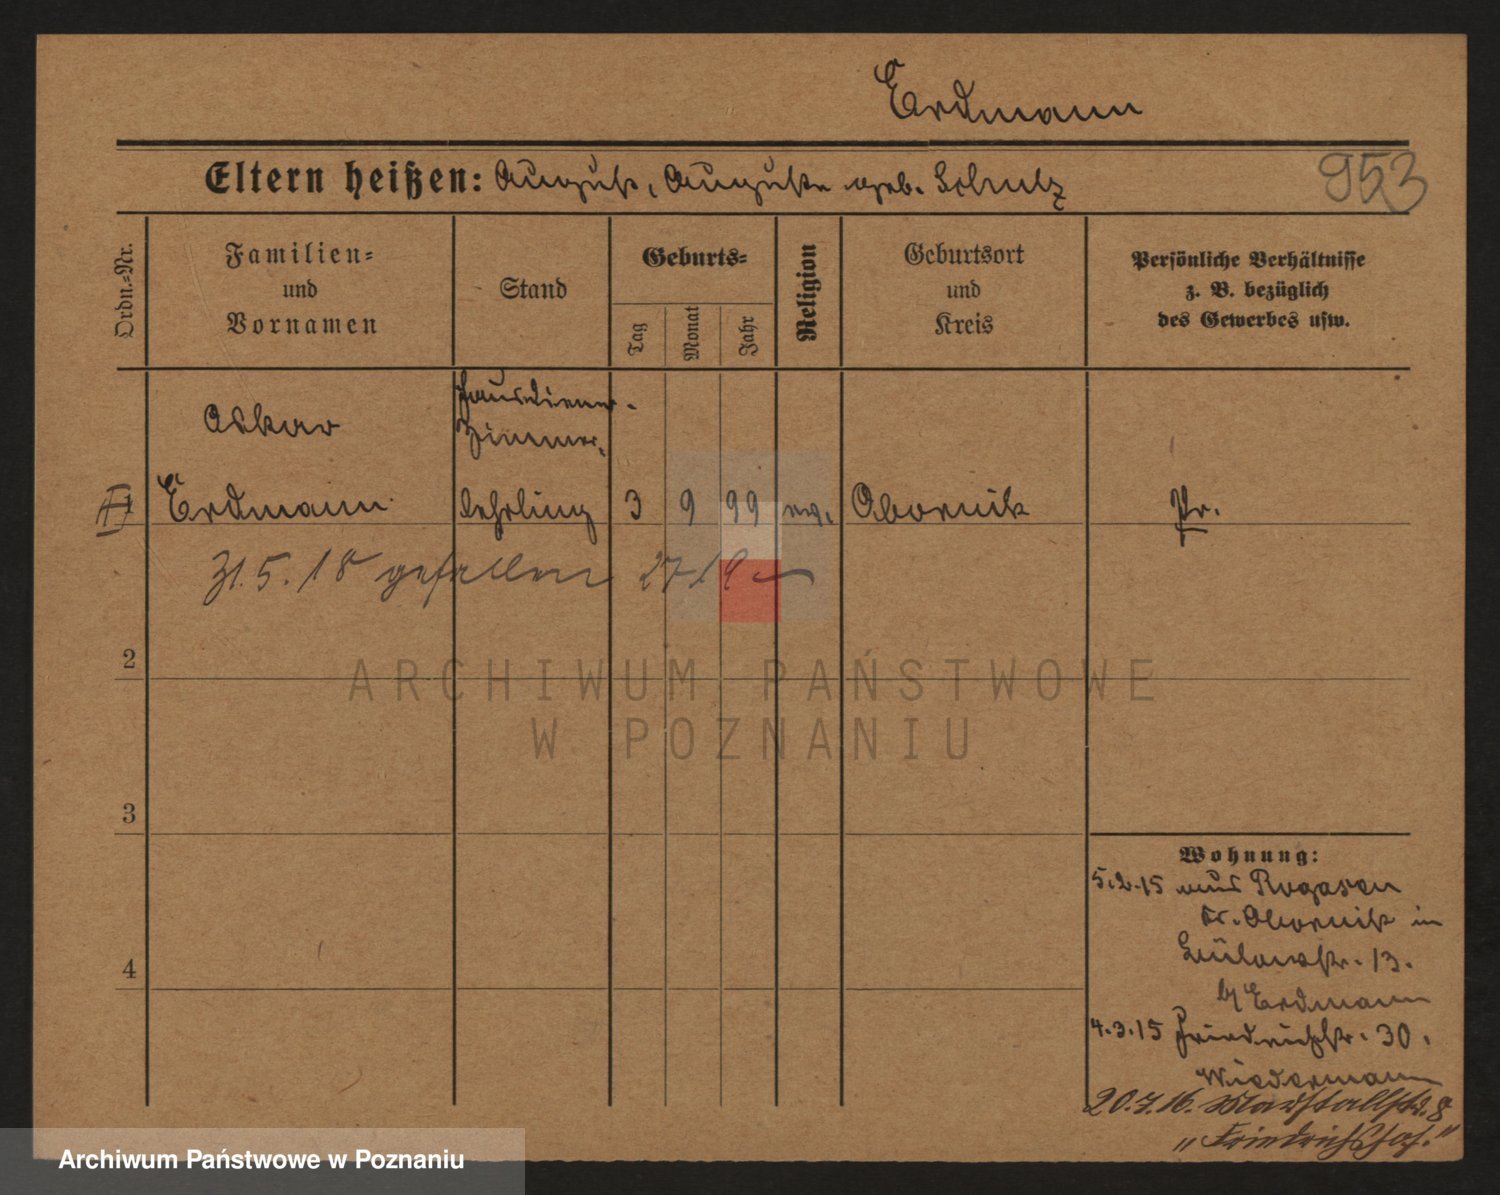 Erdmann
953
Eltern heißen: August, Auguste geb. Schulz
Ordn.-Nr.
Familien-
und
Vornamen
Stand
Geburts-
Tag
Monat
Jahr
Religion
Geburtsort
und
Kreis
Persönliche Verhältnisse
z. B. bezüglich
des Gewerbes usw.
Oskar
Hausdiener-
Zimmer-
Erdmann
lehrling
3
9
99
ev.
Obornik
Pr.
31.5.18 gefallen
2
3
4
Wohnung:
5.2.15 aus Rogasen
Kr. Obornik in
Bülowstr. 13.
b/ Erdmann
4.3.15 Friedrichstr. 30.
Wiedermann
20.7.16. Marstallstr. 8
"Friedrichshof."
ARCHIWUM PAŃSTWOWE
W POZNANIU
Archiwum Państwowe w Poznaniu